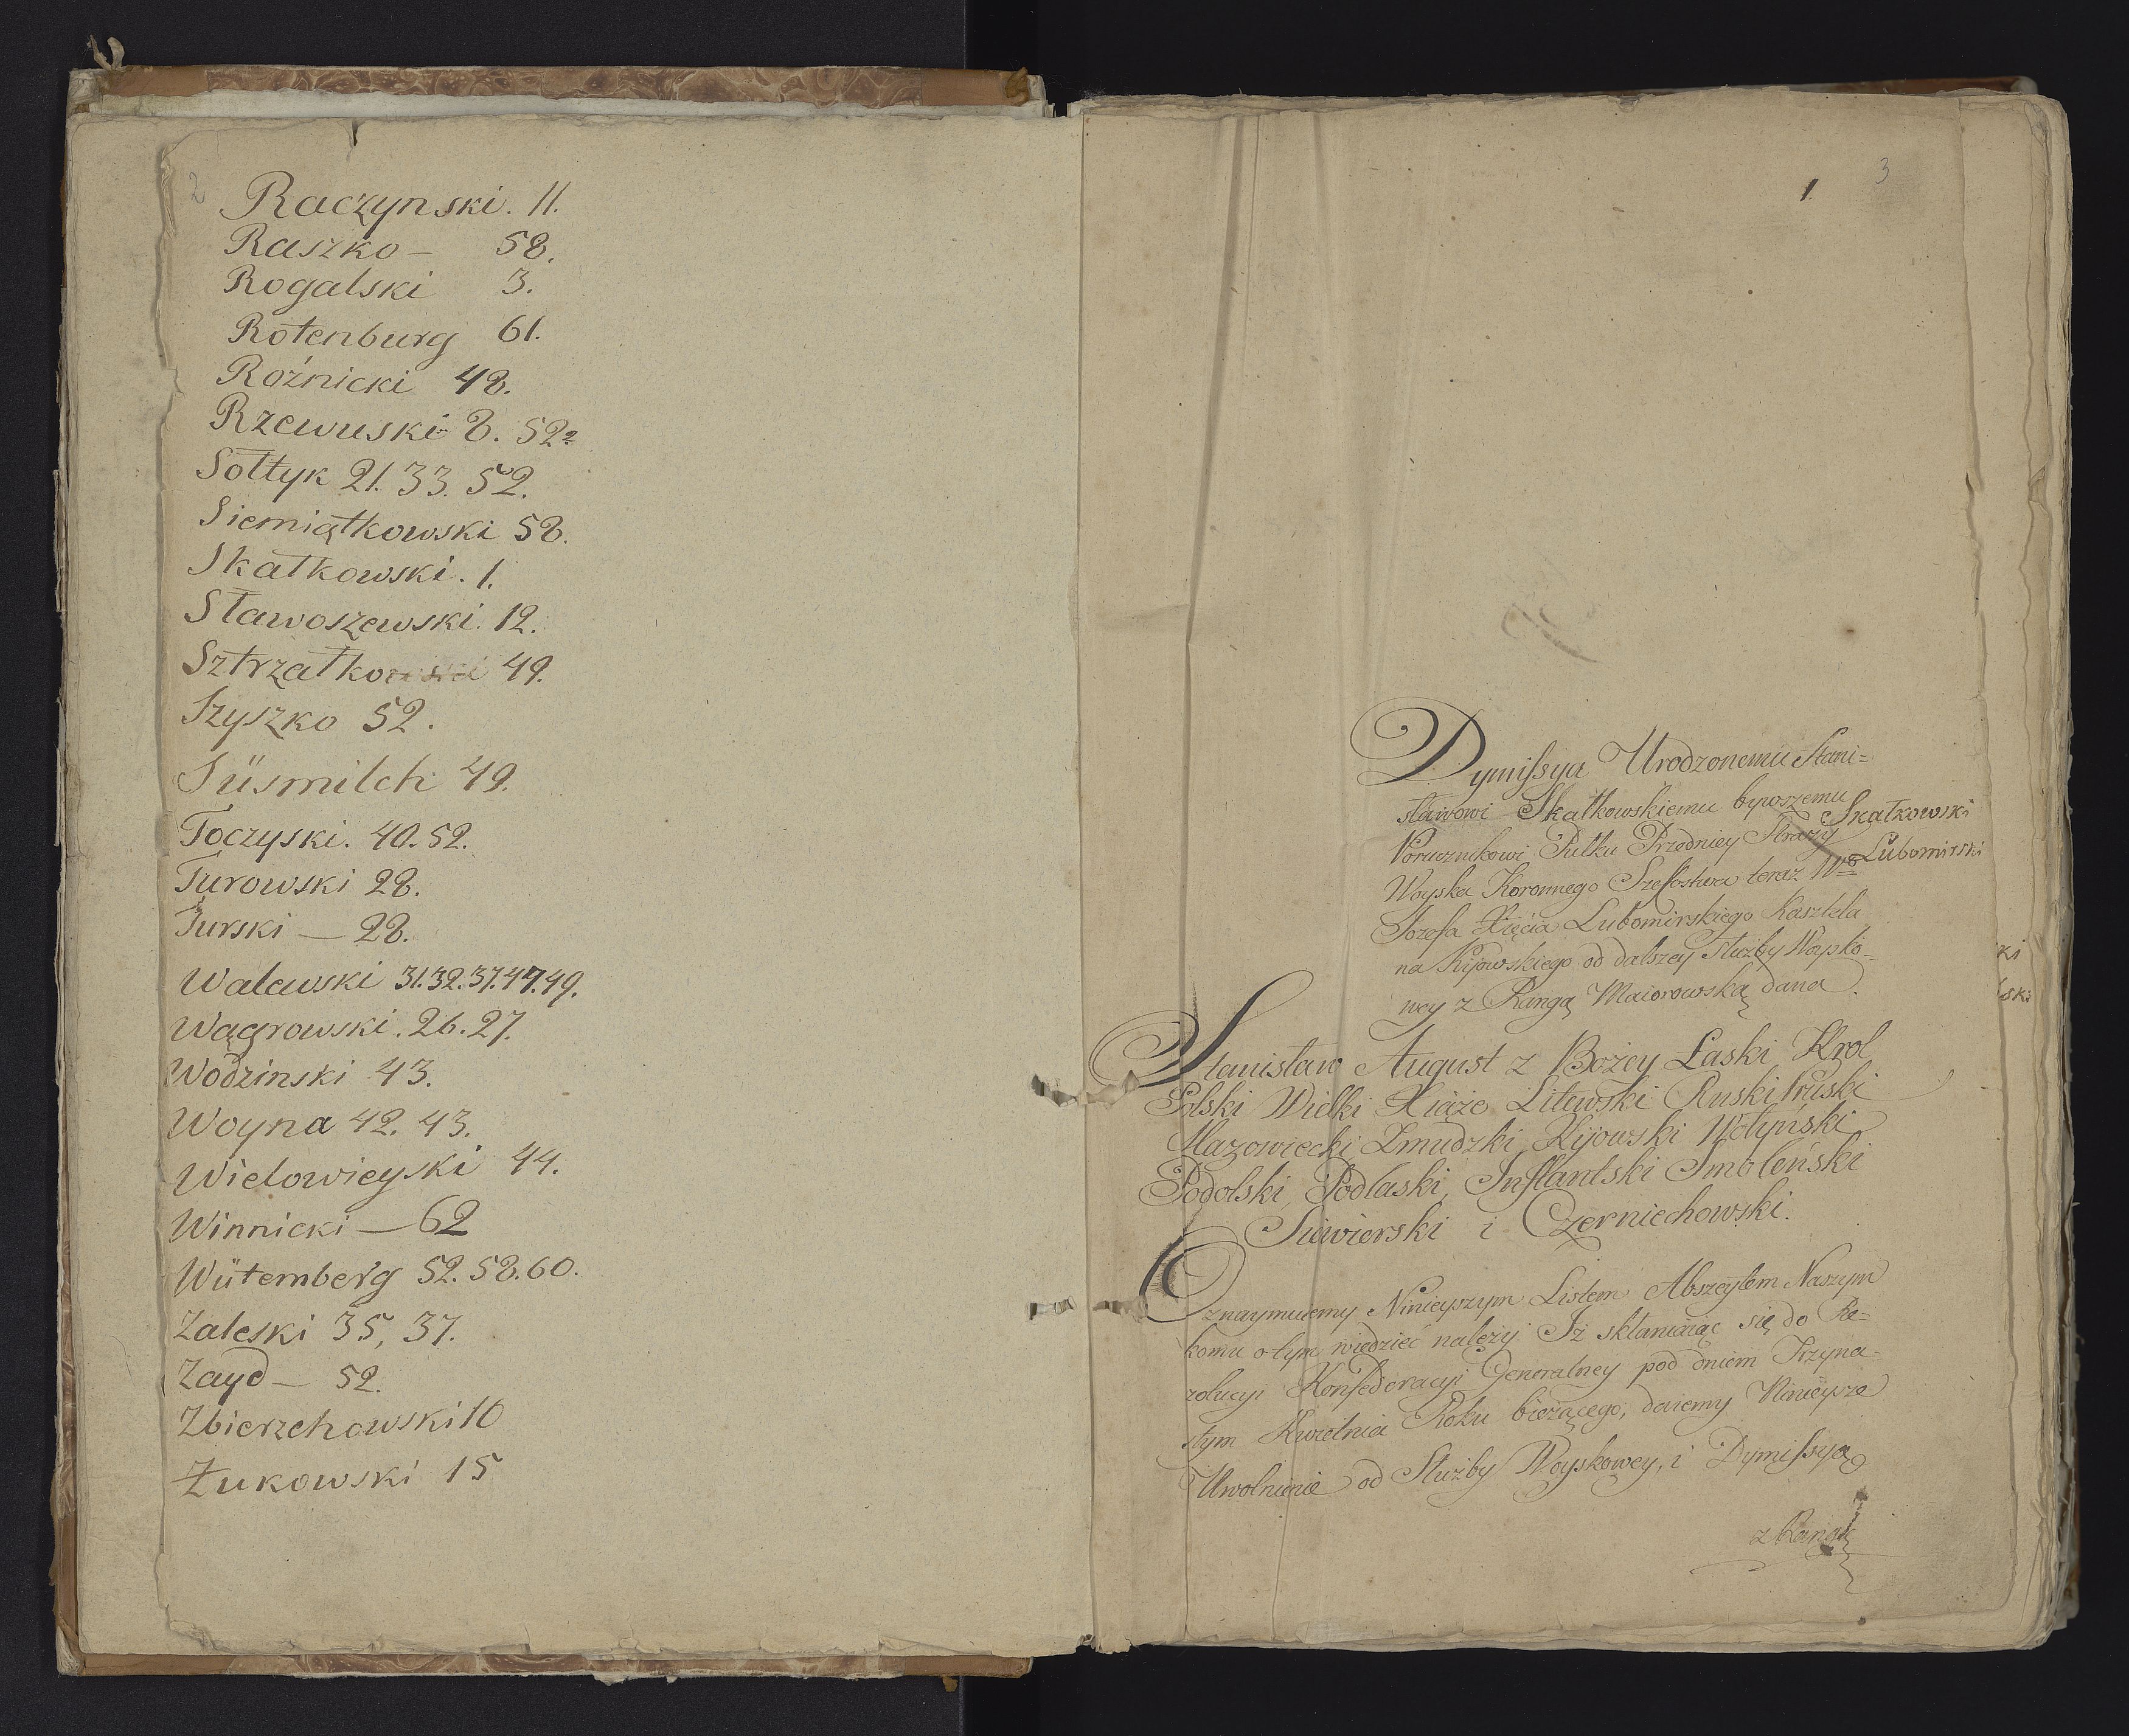 2
Raczynski. 11.
Raszko — 58.
Rogalski 3.
Rotenburg 61.
Roźnicki 48.
Rzewuski 8. 52.
Sołtyk 21. 33. 52.
Siemiątkowski 58.
Skałkowski. 1.
Sławoszewski. 12.
Sztrzałkowski 49.
Szyszko 52.
Süsmilch 49.
Toczyski. 40. 52.
Turowski 28.
Turski — 28.
Walewski 31. 32. 37. 47. 49.
Wągrowski. 26. 27.
Wodzinski 43.
Woyna 42. 43.
Wielowieyski 44.
Winnicki — 62
Wütemberg 52. 58. 60.
Zaleski 35, 37.
Zayd — 52.
Zbierzchowski 10
Żukowski 15
3
1.
Dymissya Urodzonemu Stani=
sławowi Skałkowskiemu bywszemu
Skałkowski
Porucznikowi Pułku Przedniey Straży
Lubomirski
Woyska Koronnego Szefostwa teraz
Jozefa Xięcia Lubomirskiego Kasztela
na Kijowskiego od dalszey Służby Woysko=
wey z Rangą Maiorowską dana.
Stanisław August z Bożey Łaski Krol
Polski Wielki Xiąże Litewski Ruski Pruski
Mazowiecki Zmudzki, Kijowski Wołyński
Podolski, Podlaski, Inflantski Smoleński
Siewierski i Czerniechowski.
Oznaymuiemy Ninieyszym Listem Abszeytem Naszym
komu o tym wiedzieć należy. Iż skłaniaiąc się do Re=
zolucyi Konfederacyi Generalney pod dniem Trzyna=
stym Kwietnia Roku bieżącego, daiemy Ninieysze
Uwolnienie od Służby Woyskowey, i Dymissyą
z Rangą
ki
ski